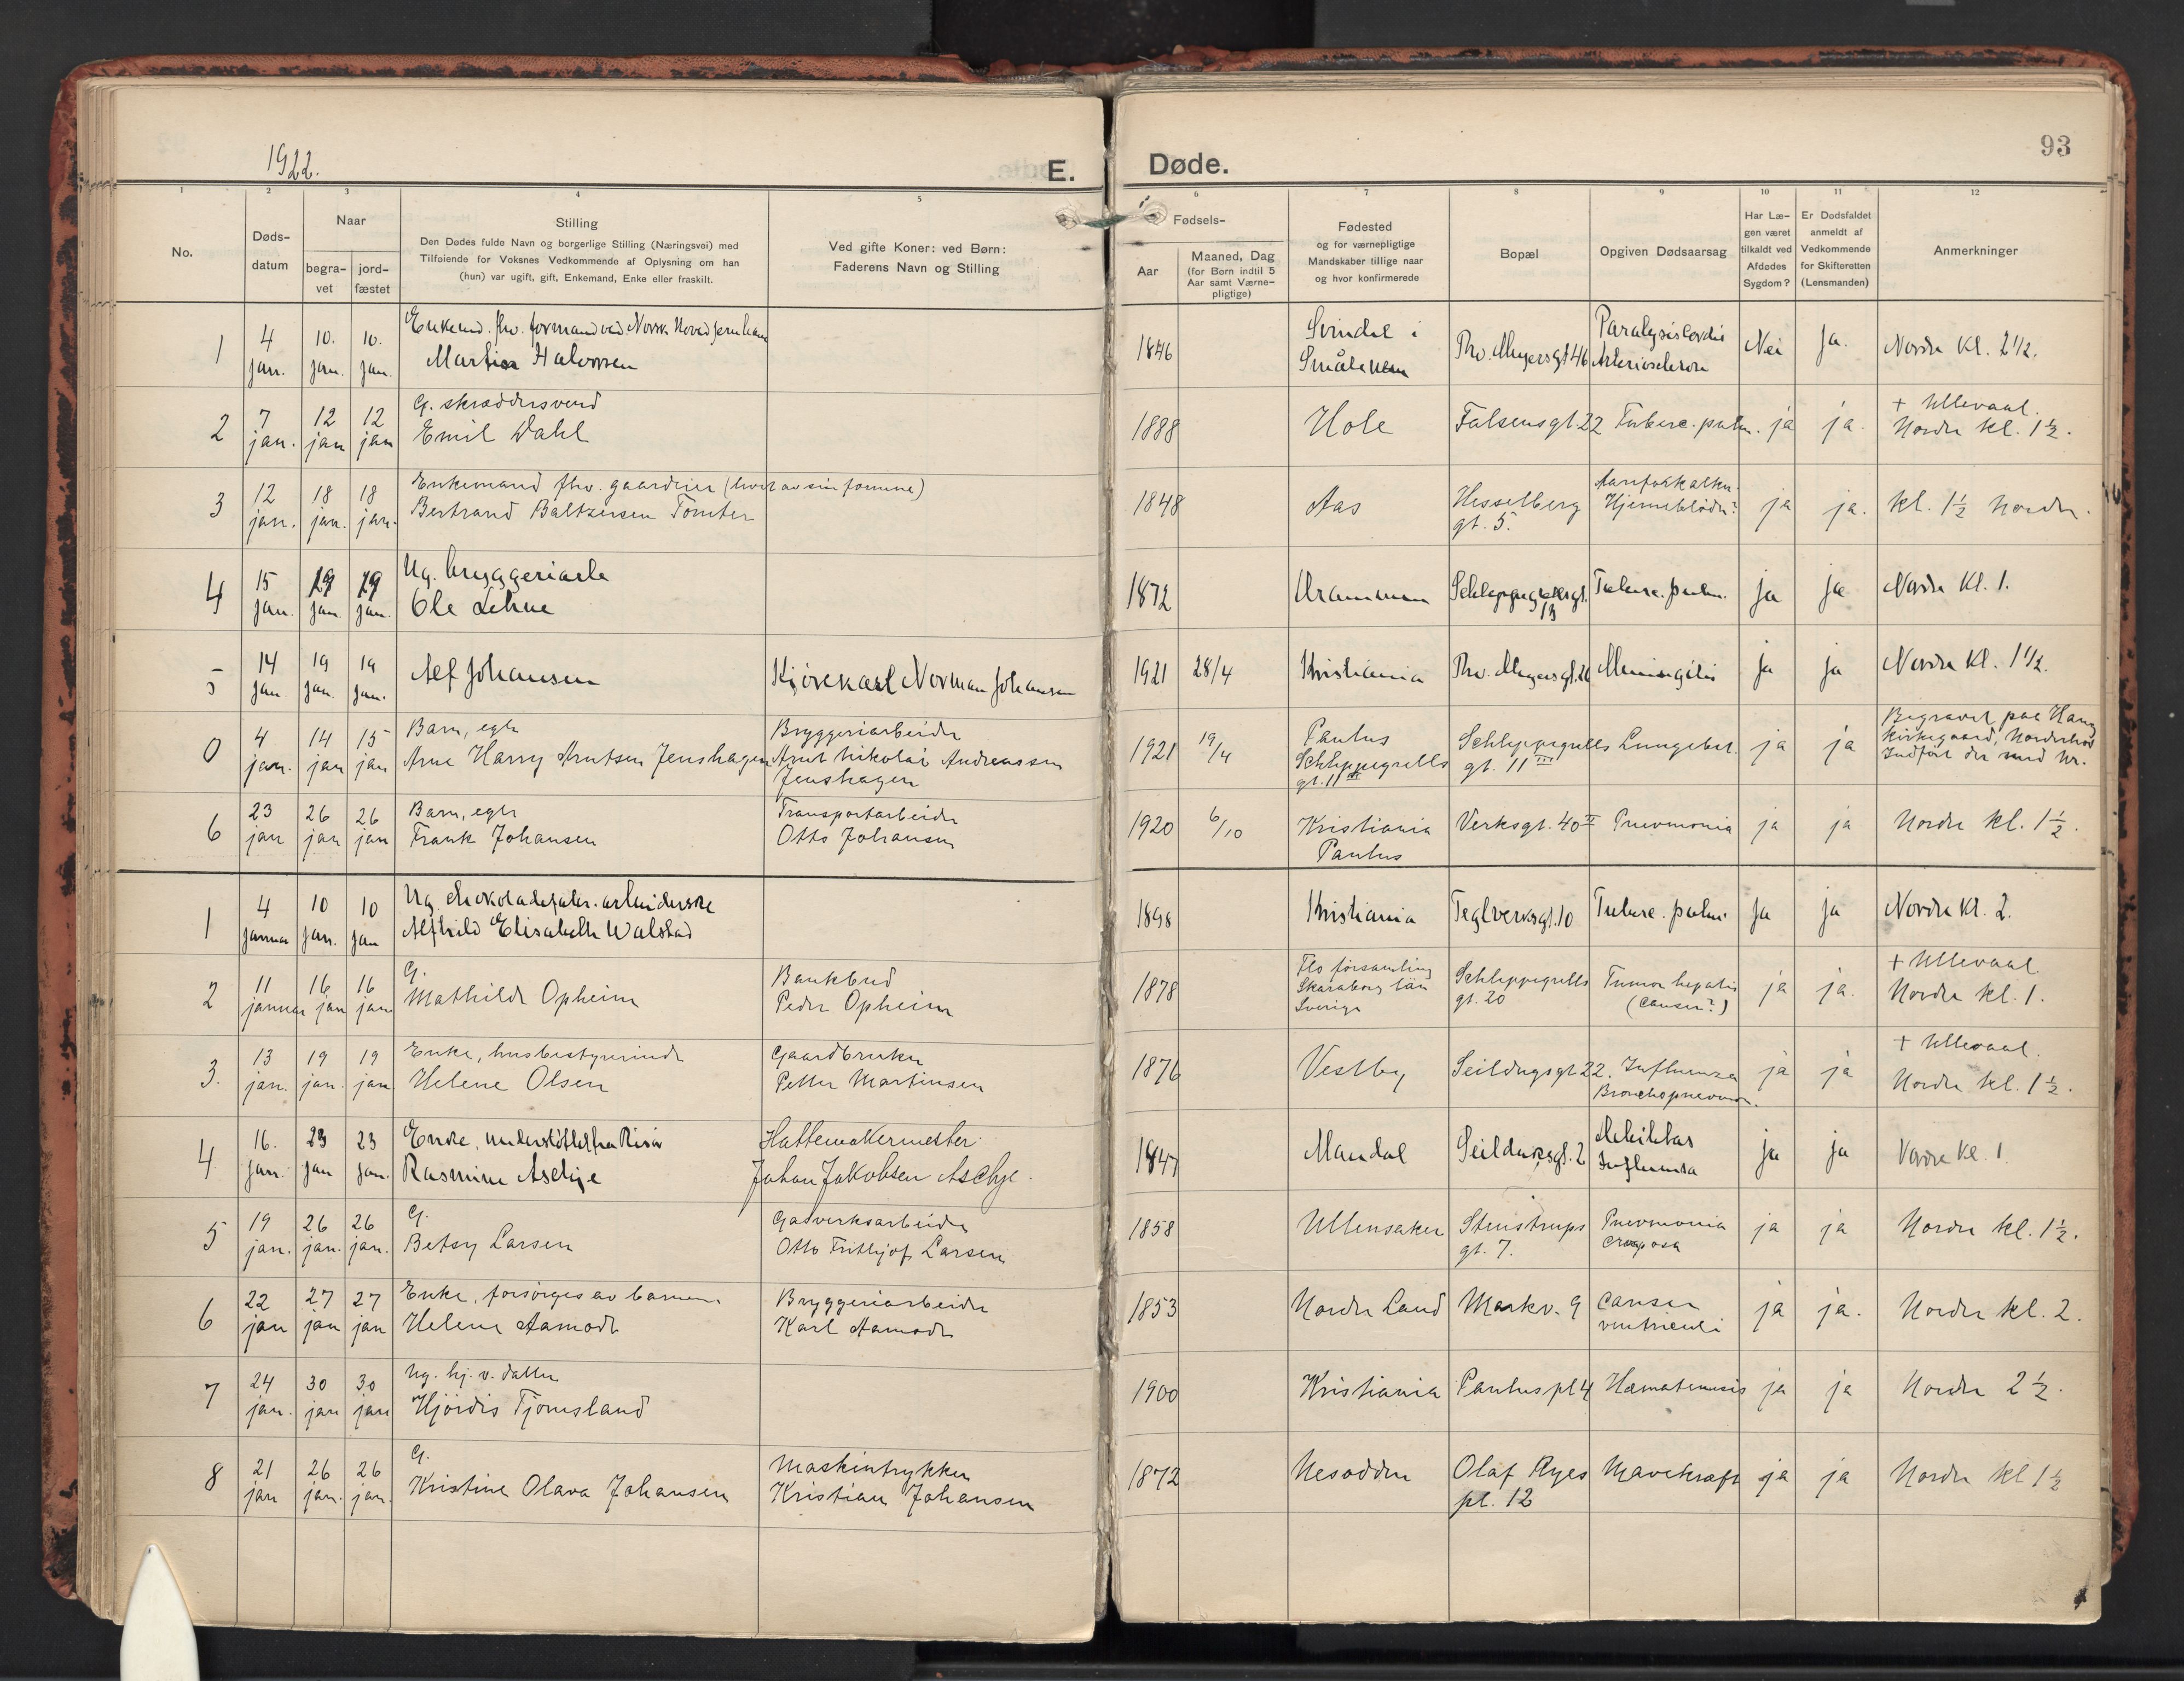 1922.
E. Døde.
93
1 2 3 4 5 6 7 8 9 10 11 12
No.
Døds-
datum
Naar
begra-
vet
jord-
fæstet
Stilling
Den Dødes fulde Navn og borgerlige Stilling (Næringsvei) med
Tilføiende for Voksnes Vedkommende af Oplysning om han
(hun) var ugift, gift, Enkemand, Enke eller fraskilt.
Ved gifte Koner: ved Børn:
Faderens Navn og Stilling
Fødsels-
Aar
Maaned, Dag
(for Børn indtil 5
Aar samt Værne-
pligtige)
Fødested
og for værnepligtige
Mandskaber tillige naar
og hvor konfirmerede
Bopæl
Opgiven Dødsaarsag
Har Læ-
gen været
tilkaldt ved
Afdødes
Sygdom?
Er Dødsfaldet
anmeldt af
Vedkommende
for Skifteretten
(Lensmanden)
Anmerkninger
1 4 jan. 10. jan. 10. jan. Enkemd. fhv. formand ved Norsk
Martin Halvorsen
1846 Svindal i Smålenene Thv. Meyersgt 46 Paralysis cordis Arteriosclerose Nei Ja. Nordre Kl. 2 1/2.
2 7 jan. 12 jan 12 jan G. skræddersvend
Emil Dahl
1888 Hole Falsensgt. 22 Tuberc. pulm. ja ja. + Ullevaal.
Nordre kl. 1 1/2.
3 12 jan. 18 jan. 18 jan. Enkemand fhv. gaardeier (levet av sin formue)
Bertrand Baltzersen Tomter
1848 Aas Hesselberg gt. 5. Aareforkalkn. Hjerneblødn? ja ja. kl. 1 1/2 Nordre.
4 15 jan. 19 jan. 19 jan. Ug. bryggeriarb
Ole Lehne
1872 Drammen Schleppegrellsgt. 13 Tuberc. pulm. ja ja Nordre Kl. 1.
5 14 jan 19 jan. 19 jan. Alf Johansen
Kjørekarl Norman Johansen
1921 28/4 Kristiania Thv. Meyersgt. Meningitis ja ja Nordre Kl. 1 1/2.
0 4 jan. 14 jan 15 jan Barn, egte
Arne Harry Arntsen Jenshagen
Bryggeriarbeider
Arnt Nikolai Andreassen
Jenshagen
1921 19/4 Paulus
Schleppegrells
gt. 11 III
Schleppegrells
gt. 11 III
Lungebet. ja ja Begravet paa Haug
Kirkegaard, Norderhov
Indført der med Nr.
6 23 jan 26 jan 26 jan Barn, egte
Frank Johansen
Transportarbeider
Otto Johansen
1920 6/10 Kristiania
Paulus
Verksgt. 40 II Pneumonia ja ja Nordre kl. 1 1/2.
1 4 januar 10 jan. 10 jan Ug. chokoladefabr. arbeiderske
Alfhild Elisabeth Walstad
1898 Kristiania Teglverksgt. 10 Tuberc. pulm. ja ja Nordre Kl. 2.
2 11 januar 16 jan 16 jan G.
Mathilde Opheim
Bankbud
Peder Opheim
1878 Flo församling
Skaraborg län
Sverige
Schleppegrells
gt. 20
Tumor hepatis
(Cancer?)
ja ja. + Ullevaal
Nordre kl. 1.
3. 13 jan. 19 jan. 19 jan Enke, husbestyrerinde
Helene Olsen
Gaardbruker
Petter Martinsen
1876 Vestby Seildugsgt 22. Influenza
Bronchopneumon.
ja ja + Ullevaal.
Nordre kl. 1 1/2.
4 16. jan. 23 jan 23 jan. Enke, understøttet fra Risør
Rasmine Aschje
Hattemakermester
Johan Jakobsen Aschje.
1847 Mandal Seilduksgt. 2 Debilitas
Influenza
ja ja Nordre Kl. 1.
5 19 jan. 26 jan. 26 jan. G.
Betsy Larsen
Gasverksarbeider
Otto Frithjof Larsen
1858 Ullensaker Stenstrups
gt. 7.
Pneumonia
crouposa
ja ja Nordre kl. 1 1/2.
6 22 jan 27 jan 27 jan Enke, forsørges av barnene
Helene Aamodt
Bryggeriarbeider
Karl Aamodt
1853 Nordre Land Markv. 9 Cancer
ventriculi
ja ja. Nordre kl. 2.
7 24 jan. 30 jan 30 jan Ug. hj. v. datter
Hjørdis Tjomsland
1900 Kristiania Pauluspl 4 Hæmatemesis ja ja Nordre 2 1/2.
8 21 jan 26 jan. 26 jan. G.
Kristine Olava Johansen
Maskintrykker
Kristian Johansen
1872 Nesodden Olaf Ryes
pl. 12
Mavekræft ja ja Nordre kl 1 1/2